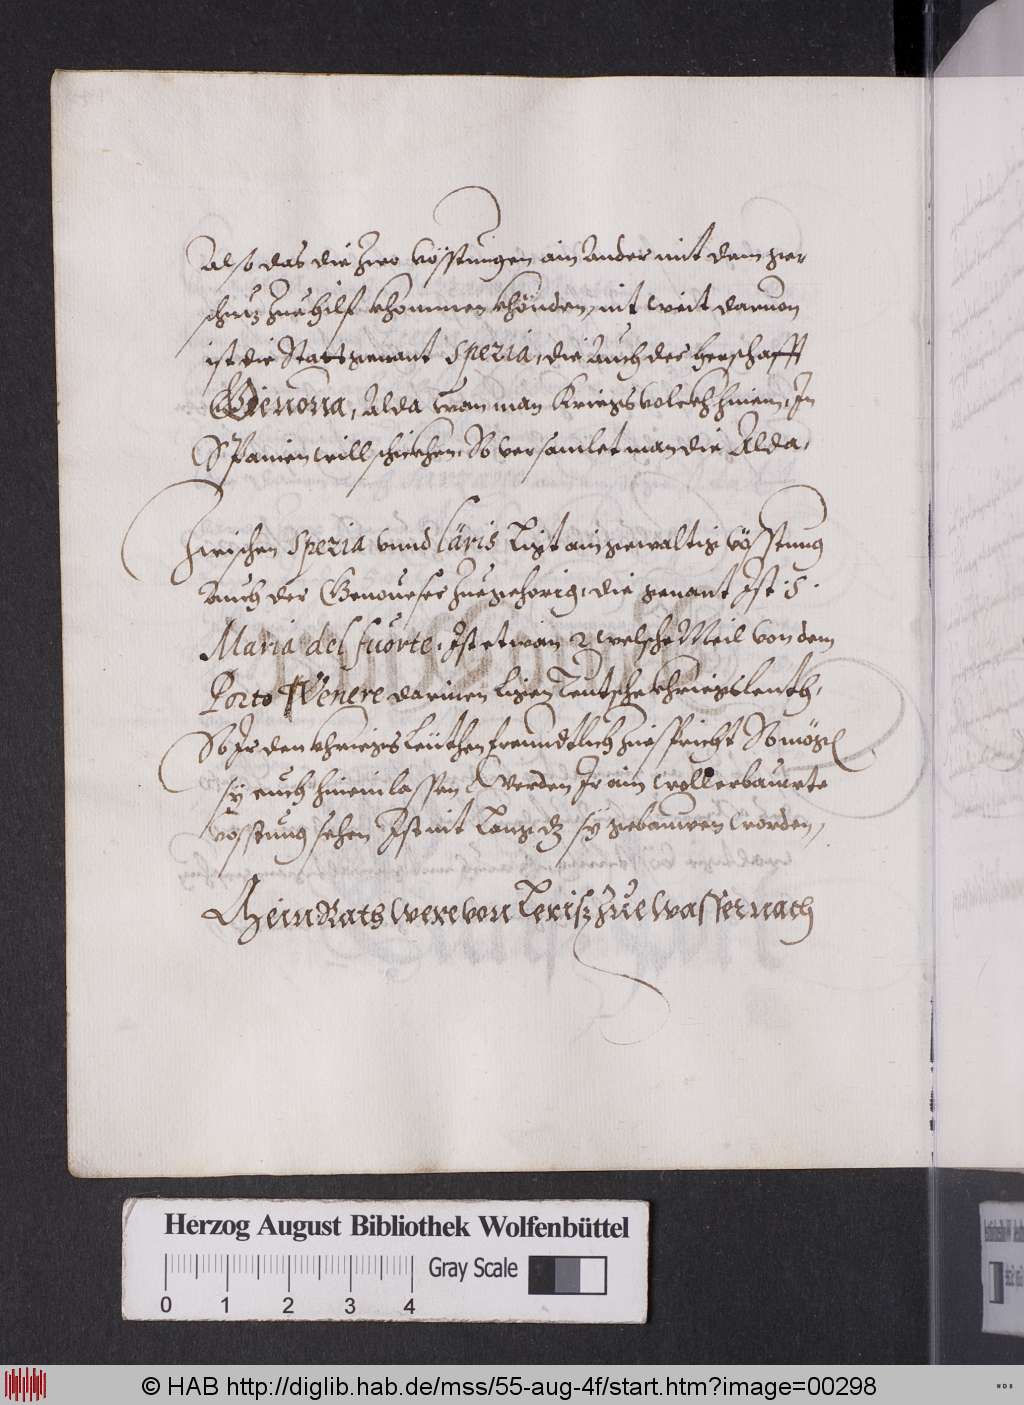 Also das die Zwo Vösstungen ain Ander mit dem ger
schuz Zue hilf khommen khönden, nit weit daruon
ist die Statt genant Spezia, die Auch des herschafft
Genoua, Alda wan man Kriegsvolckh hinein, In
Spanien will schickhen, So versamlet man die Alda,
Zwischen Spezia vnnd Läris Ligt ain gewaltige Vösstung
Auch der Genoueser Zuegehörig, die genant Ist S.
Maria del fuorte, Ist etwan 2 welsche Meil von dem
Porto Venere darinen Ligen Teutsche khriegsleuth,
So Ir den khriegsLeüthen freundtlich zuespricht So mögen
sy euch hinein lassen Werden Ir ain woll erbauwte
Vosstung sehen Ist nit Lang dz sy gebauwen worden,
Mein Rath Were von Leriss Zue Wasser nach
Herzog August Bibliothek Wolfenbüttel
Gray Scale
0 1 2 3 4
© HAB http://diglib.hab.de/mss/55-aug-4f/start.htm?image=00298